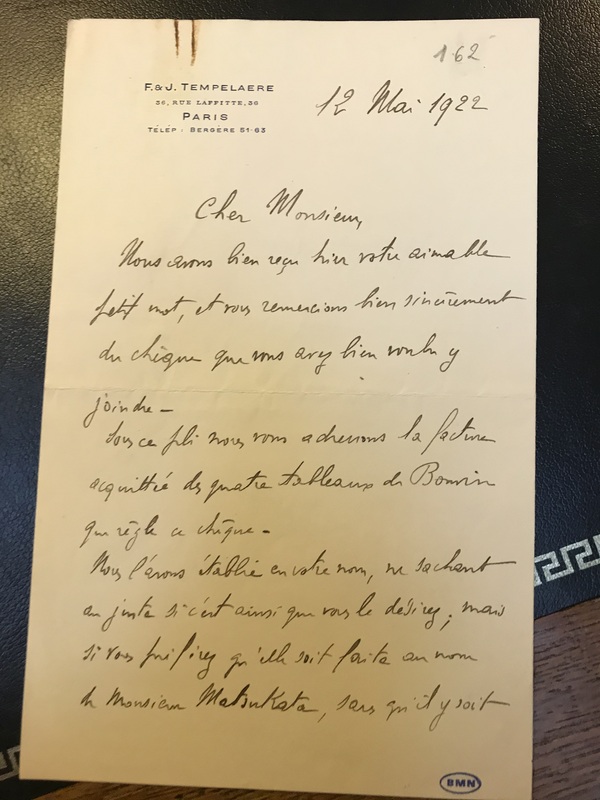 162
F. & J. TEMPELAERE
36, RUE LAFFITTE, 36
PARIS
TÉLÉP : BERGÈRE 51-63
12 Mai 1922
Cher Monsieur,
Nous avons bien reçu hier votre aimable
petit mot, et vous remercions bien sincèrement
du chèque que vous avez bien voulu y
joindre -
Sous ce pli nous vous adressons la facture
acquittée des quatre tableaux de Bonvin
que règle ce chèque -
Nous l'avons établie en votre nom, ne sachant
au juste si c'est ainsi que vous le désirez ; mais
si vous préfériez qu'elle soit faite au nom
de Monsieur Matsukata, sans qu'il y soit
BMN